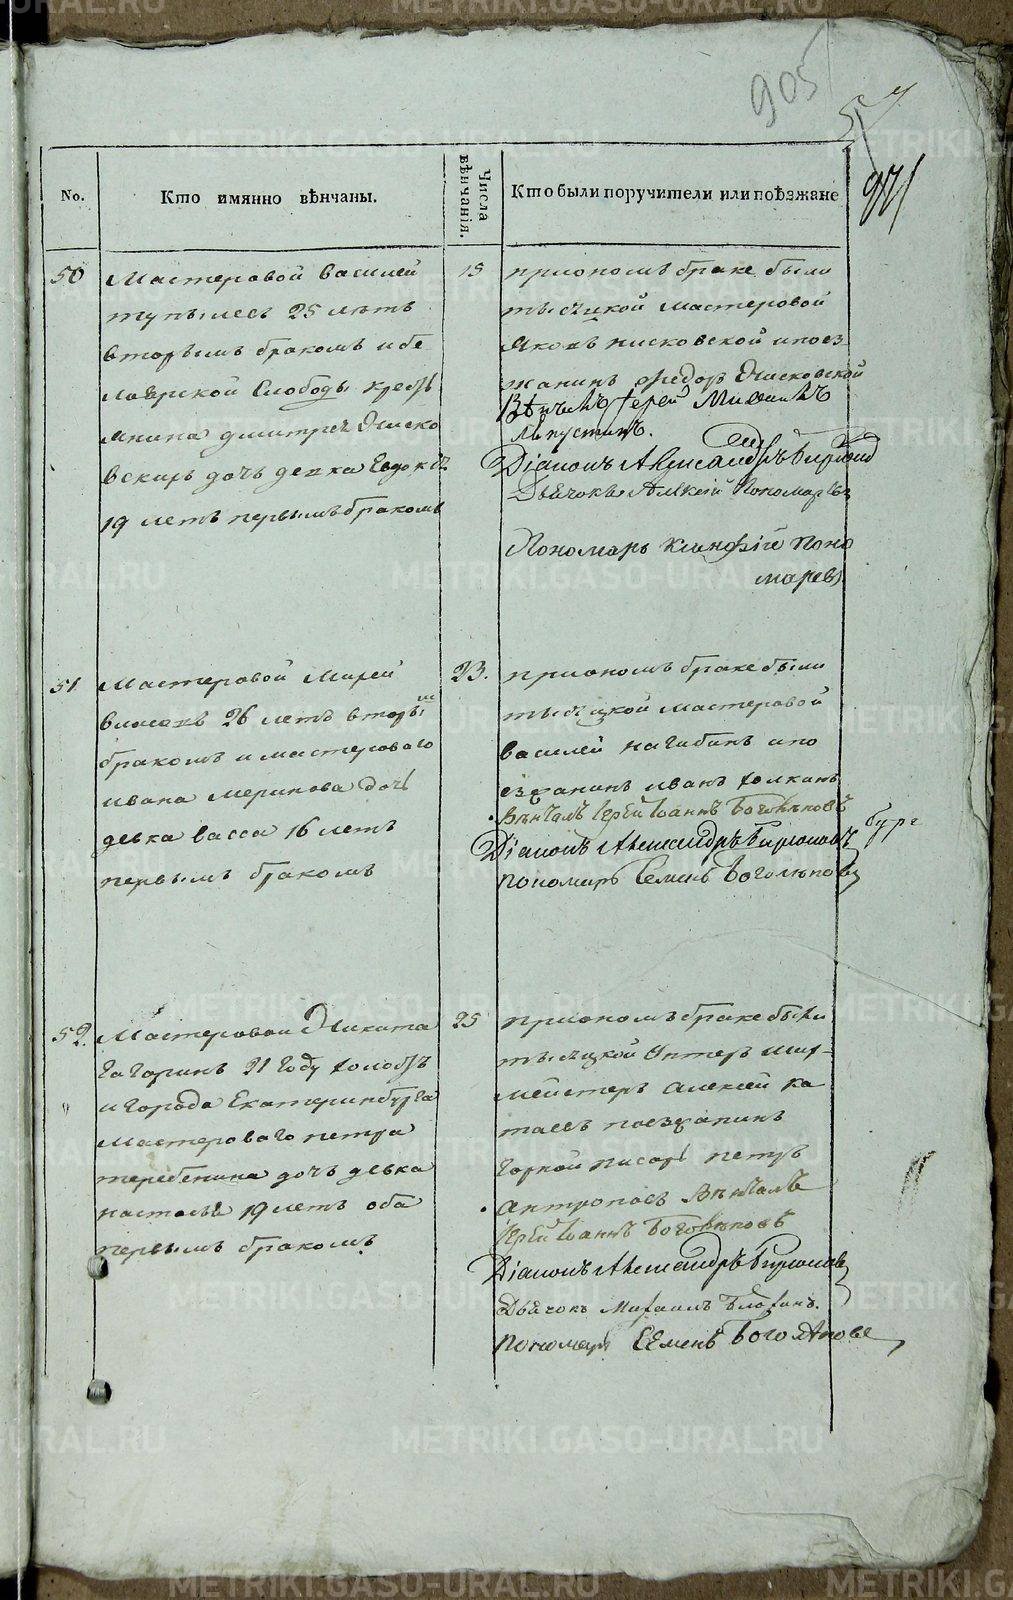 905
57
971
No.
Кто имянно вѣнчаны.
Числа вѣнчанія.
Кто были поручители или поѣзжане
50
Мастеровой василей
тупылевъ 25 лѣтъ
вторымъ бракомъ и бе
лоярской Слободы кресть
янина дмитрея
дочь девка Евдокія
19 летъ первымъ бракомъ
15
при ономъ браке были
тысяцкой мастеровой
Яковъ писковской и поез
жанинъ Федоръ
Вѣнчалъ Іерей Михаилъ
Діаконъ Александръ
Дьячокъ Алѣкѣй Пономаревъ
Пономарь Ксинофій Поно
маревъ
51
Мастеровой Мирей
власовъ 26 летъ вторы
мъ
бракомъ и мастероваго
ивана меринова дочь
девка васса 16 летъ
первымъ бракомъ
23.
при ономъ браке были
тысяцкой мастеровой
василей нагибинъ и по
езжанинъ иванъ
Вѣнчалъ Іерей Іоаннъ Боголѣповъ
Діаконъ Александръ Бирюковъ
пономарь Семенъ Боголѣповъ
52.
Мастеровой Никита
Гагаринъ 21 году холостъ
и города Екатеринбурга
мастероваго петра
теребенина дочь девка
настасья 19 летъ оба
первымъ бракомъ
25
при ономъ браке были
тысяцкой Унтеръ шихт-
мейстеръ алексей ка
таевъ поезжанинъ
горной писарь петръ
антроповъ Вѣнчалъ
Іерей Іоаннъ Боголѣповъ
Діаконъ Александръ Бирюковъ
Дьячокъ Михаилъ
пономарь Семенъ Боголѣповъ
METRIKI.GASO-URAL.RU